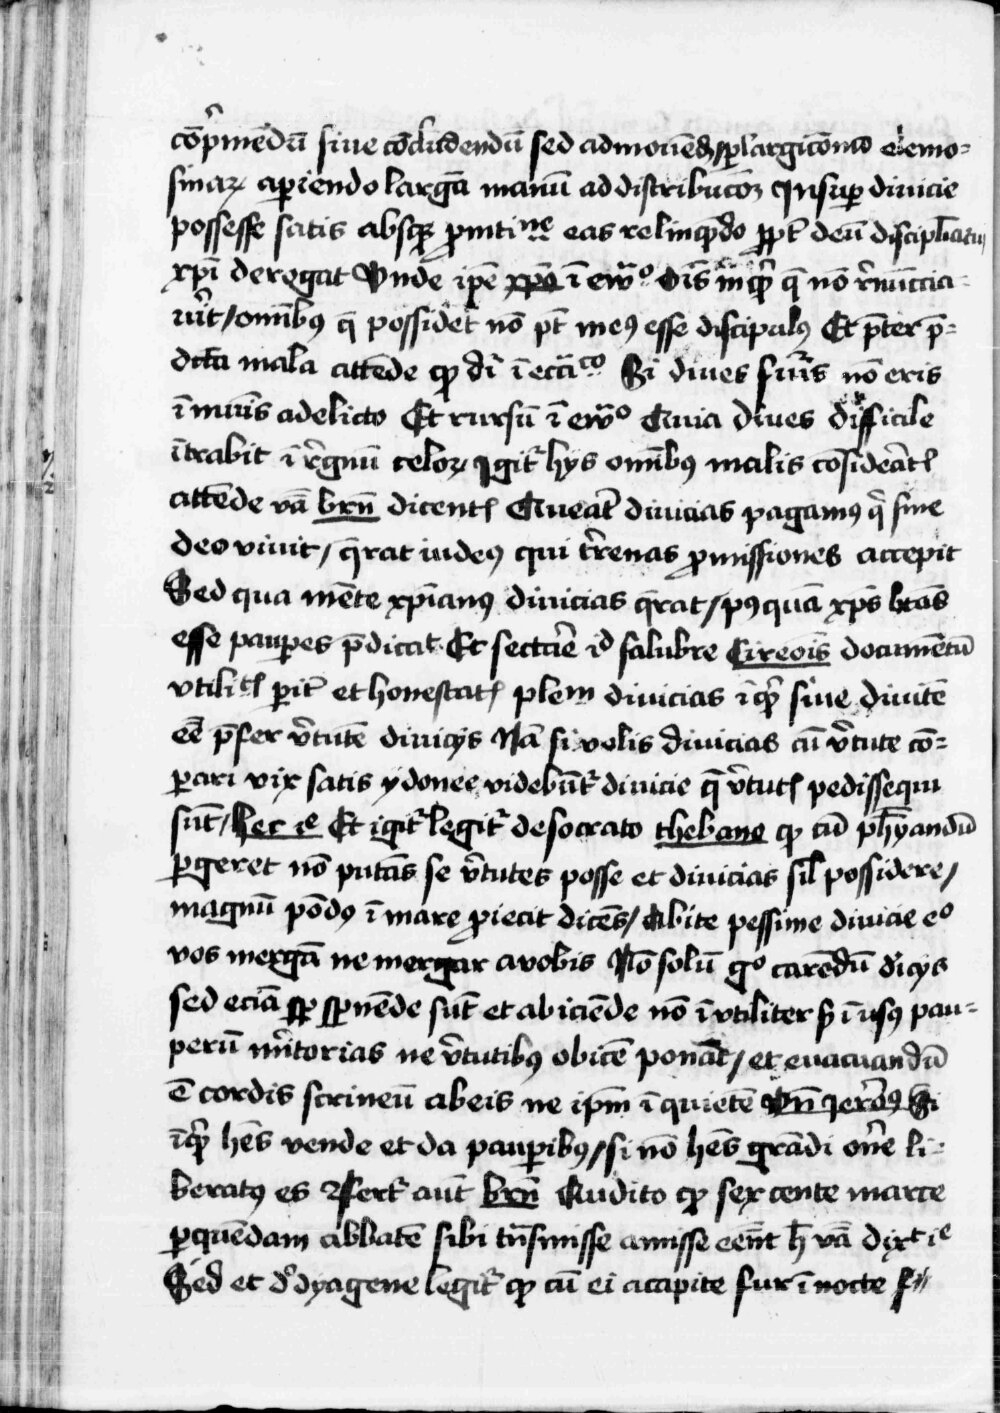 cōp̄mendū siue cōcludendū sed admouend̄ p̱ largicōm̄o elemo-
sinaꝝ apiendo largā manū ad distribucōꝫ Insup diuicie
possesse satis absqꝫ ꝓmtine eas relinq̄ndo ꝓpt̄ deū discipl̄atu
xpī deregat Vnde ip̄e xp̄o ī ewāº Oīs īqt q̄ nō r̄nūccia-
ūit / om̄ibꝰ q̄ possidet nō pt̄ meꝰ esse discipulꝰ Et p̄ter p̄-
dcā mala attēde qꝫ dī ī eccāco Si diues fūis nō eris
īmūis adelicto Et rursū ī ewāº Quia diues difficile
ītrabit ī r̄gnū celoꝝ Igit̄ hys om̄ibꝰ malis cōsiderat̄
attēde vā brn̄ dicent̄ Querat diuicias paganꝰ q̄ sine
deo viuit / q̄rat iudeꝰ qui tr̄enas ꝓmissiones accepit
Sed qua mēte xp̄ianꝰ diuicias q̄rat / pꝰquā xp̄s btōs
esse paupes p̄dicat Et sectare id salubre Cireoīs documētū
vtilit̄ pit̄ et honestat̄ plem diuicias īqt siue diuitē
eē p̄fer v̄tutē diuicys Nā si velis diuicias cū v̄tute cō-
pari vix satis ydonee videbūt̄ diuicie q̄ v̄tut̄ pedissequi
sūt / hec ie Et igit̄ legit̄ de socrato thebano qꝫ cū
pgeret nō putās se v̄tutes posse et diuicias sīl possidere /
magnū pōdꝰ ī mare ꝓiecit dicēs / abite pessime diuicie eº
vos mergā ne mergar a vobis Nō solū gº carēdū dicys
sed eciā sp̄nēde sūt et abiciēde nō īvtiliter s̄ ī vsꝰ pau-
perū m̄itorias ne v̄tutibꝰ obicē ponāt / et euacuandū
ē cordis scrineū abeis ne ip̄m īquietē Vn̄ ieroꝰ Si
īqt hēs vende et da paupibꝰ / si nō hēs grādi on̄e li-
beratꝰ es Refert̄ aūt brn̄ Audito qꝫ sex cente marce
p quendam abbatē sibi tn̄smisse amisse eēnt h̄ vā dixt ie
Sed et dº dyagene legit̄ qꝫ cū ei acapite fur ī nocte